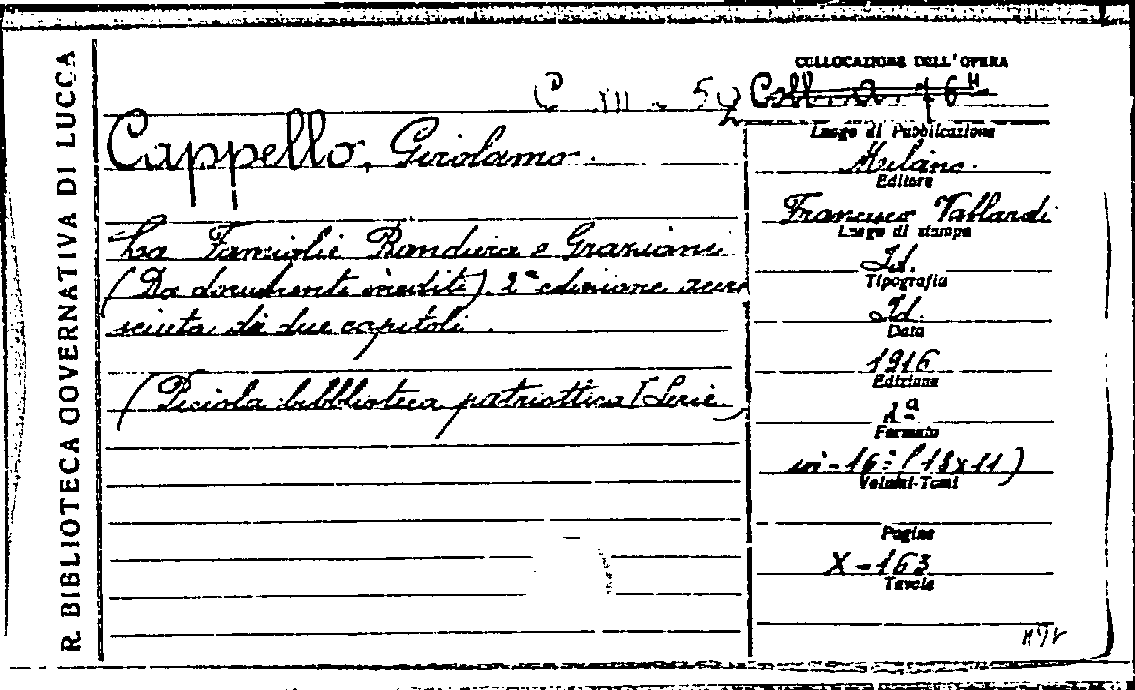 R. BIBLIOTECA GOVERNATIVA DI LUCCA
COLLOCAZIONE DELL'OPERA
C XII - 52
Cappello, Girolamo.
La Famiglie Bandiera e Graziani
(Da documenti inediti) 2ª edizione accre
sciuta di due capitoli.
(Piciola bibblioteca patriottica I Serie)
Luogo di Pubblicazione
Milano.
Editore
Francesco Vallardi
Luogo di stampa
Id.
Tipografia
Id.
Data
1916
Edizione
Formato
in-16º (18x11)
Volumi-Tomi
Pagine
X-163
Tavole